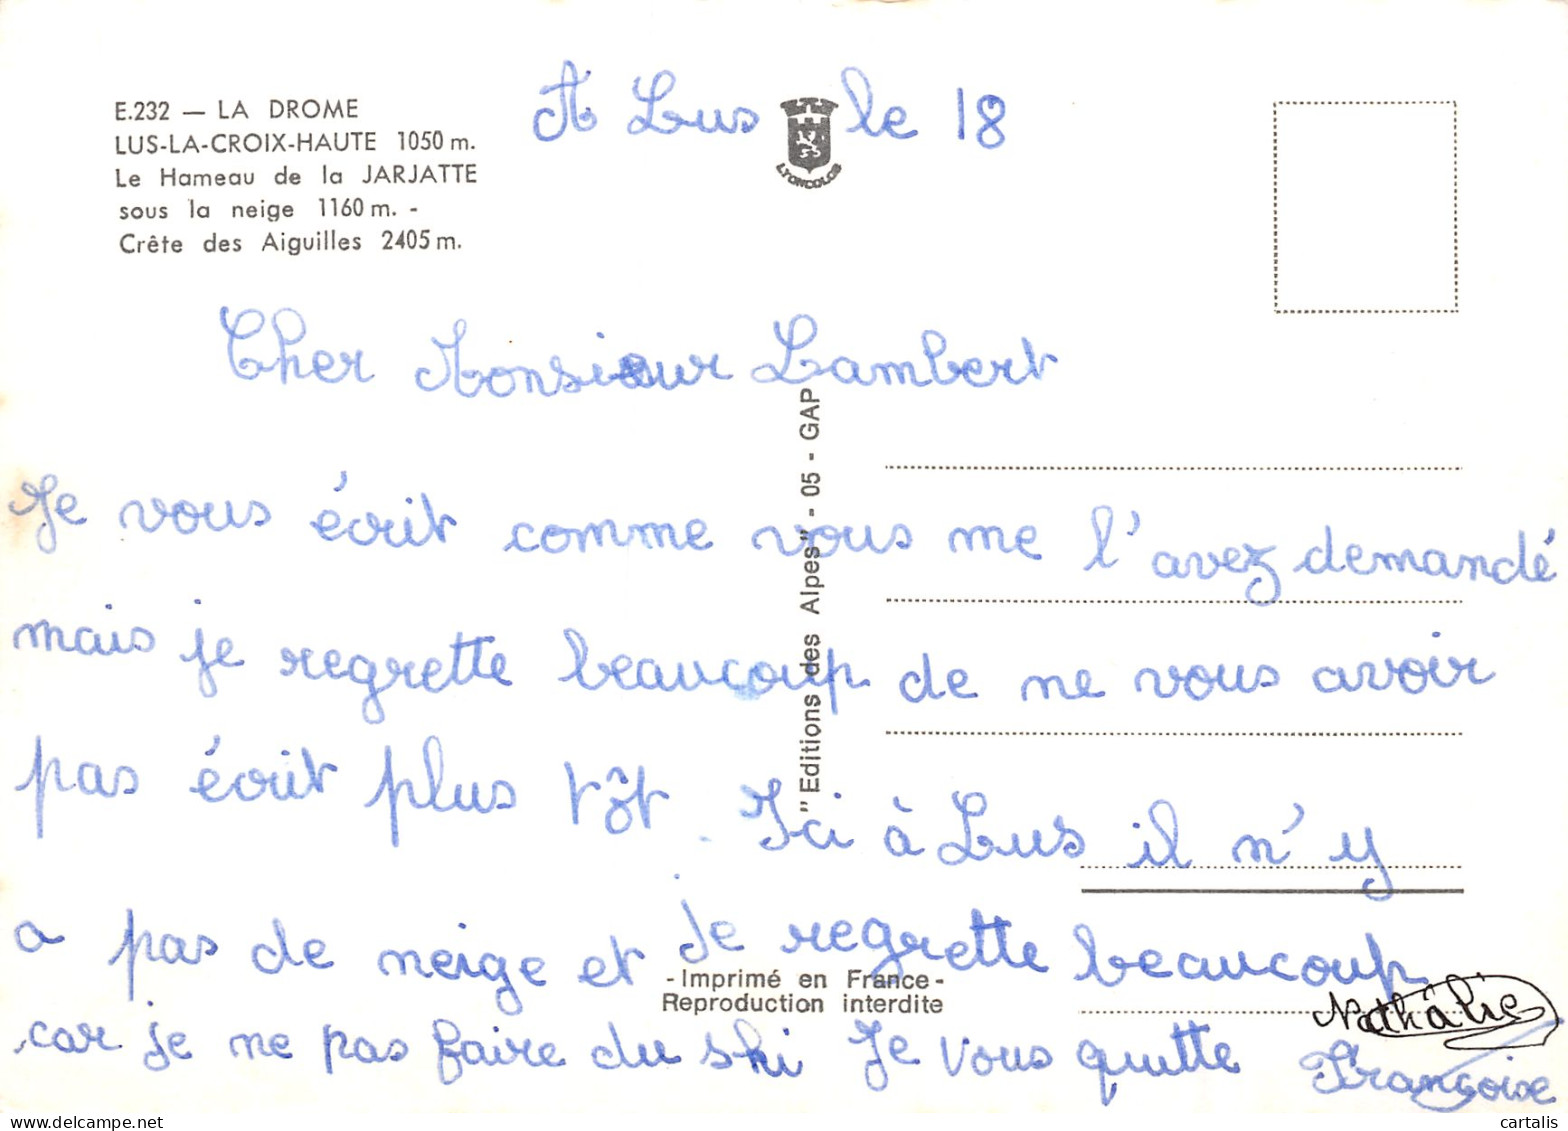 E.232 — LA DROME
LUS-LA-CROIX-HAUTE 1050 m.
Le Hameau de la JARJATTE
sous la neige 1160 m. -
Crête des Aiguilles 2405 m.
A Lus le 18
LYONCOLOR
Cher Monsieur Lambert
Je vous écrit comme vous me l'avez demandé
mais je regrette beaucoup de ne vous avoir
pas écrit plus tôt. Ici à Lus il n'y
a pas de neige et je regrette beaucoup
car je ne pas faire du ski Je vous quitte
Nathâlie
Françoise
"Editions des Alpes" - 05 - GAP
-Imprimé en France-
Reproduction interdite
cartalis